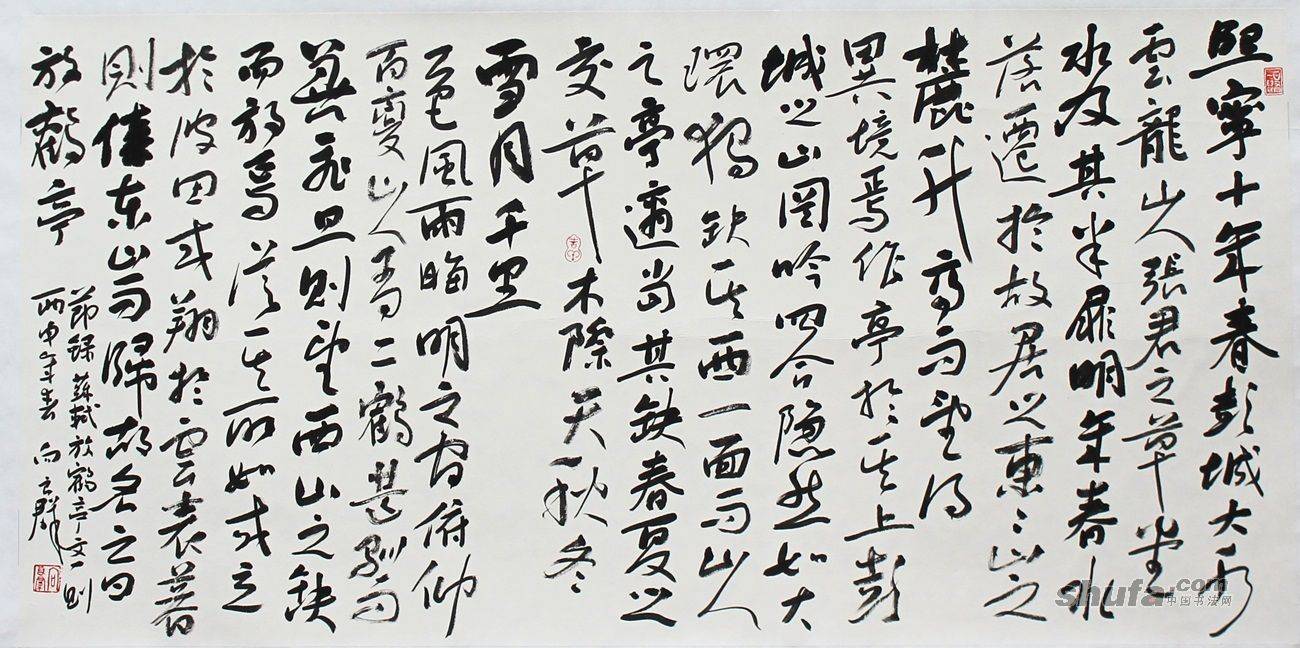 熙寧十年春彭城大水
雲龍山人張君之草堂
水及其半扉明年春水
落遷於故居之東〻山之
麓升高而望得
異境焉作亭於其上彭
城之山岡岭四合隐然如大
環獨缺其西一面而山人
之亭適當其缺春夏之
交草木際天秋冬
雪月千里
一色風雨晦明之间俯仰
百變山人有二鶴甚馴而
善飛旦則望西山之缺
而放焉從其所如或立
於陂田或翔於雲表暮
則傃東山而歸故名之曰
放鶴亭
節錄蘇軾放鶴亭文一則
丙申年春 向云群
shufa.com
中国书法网